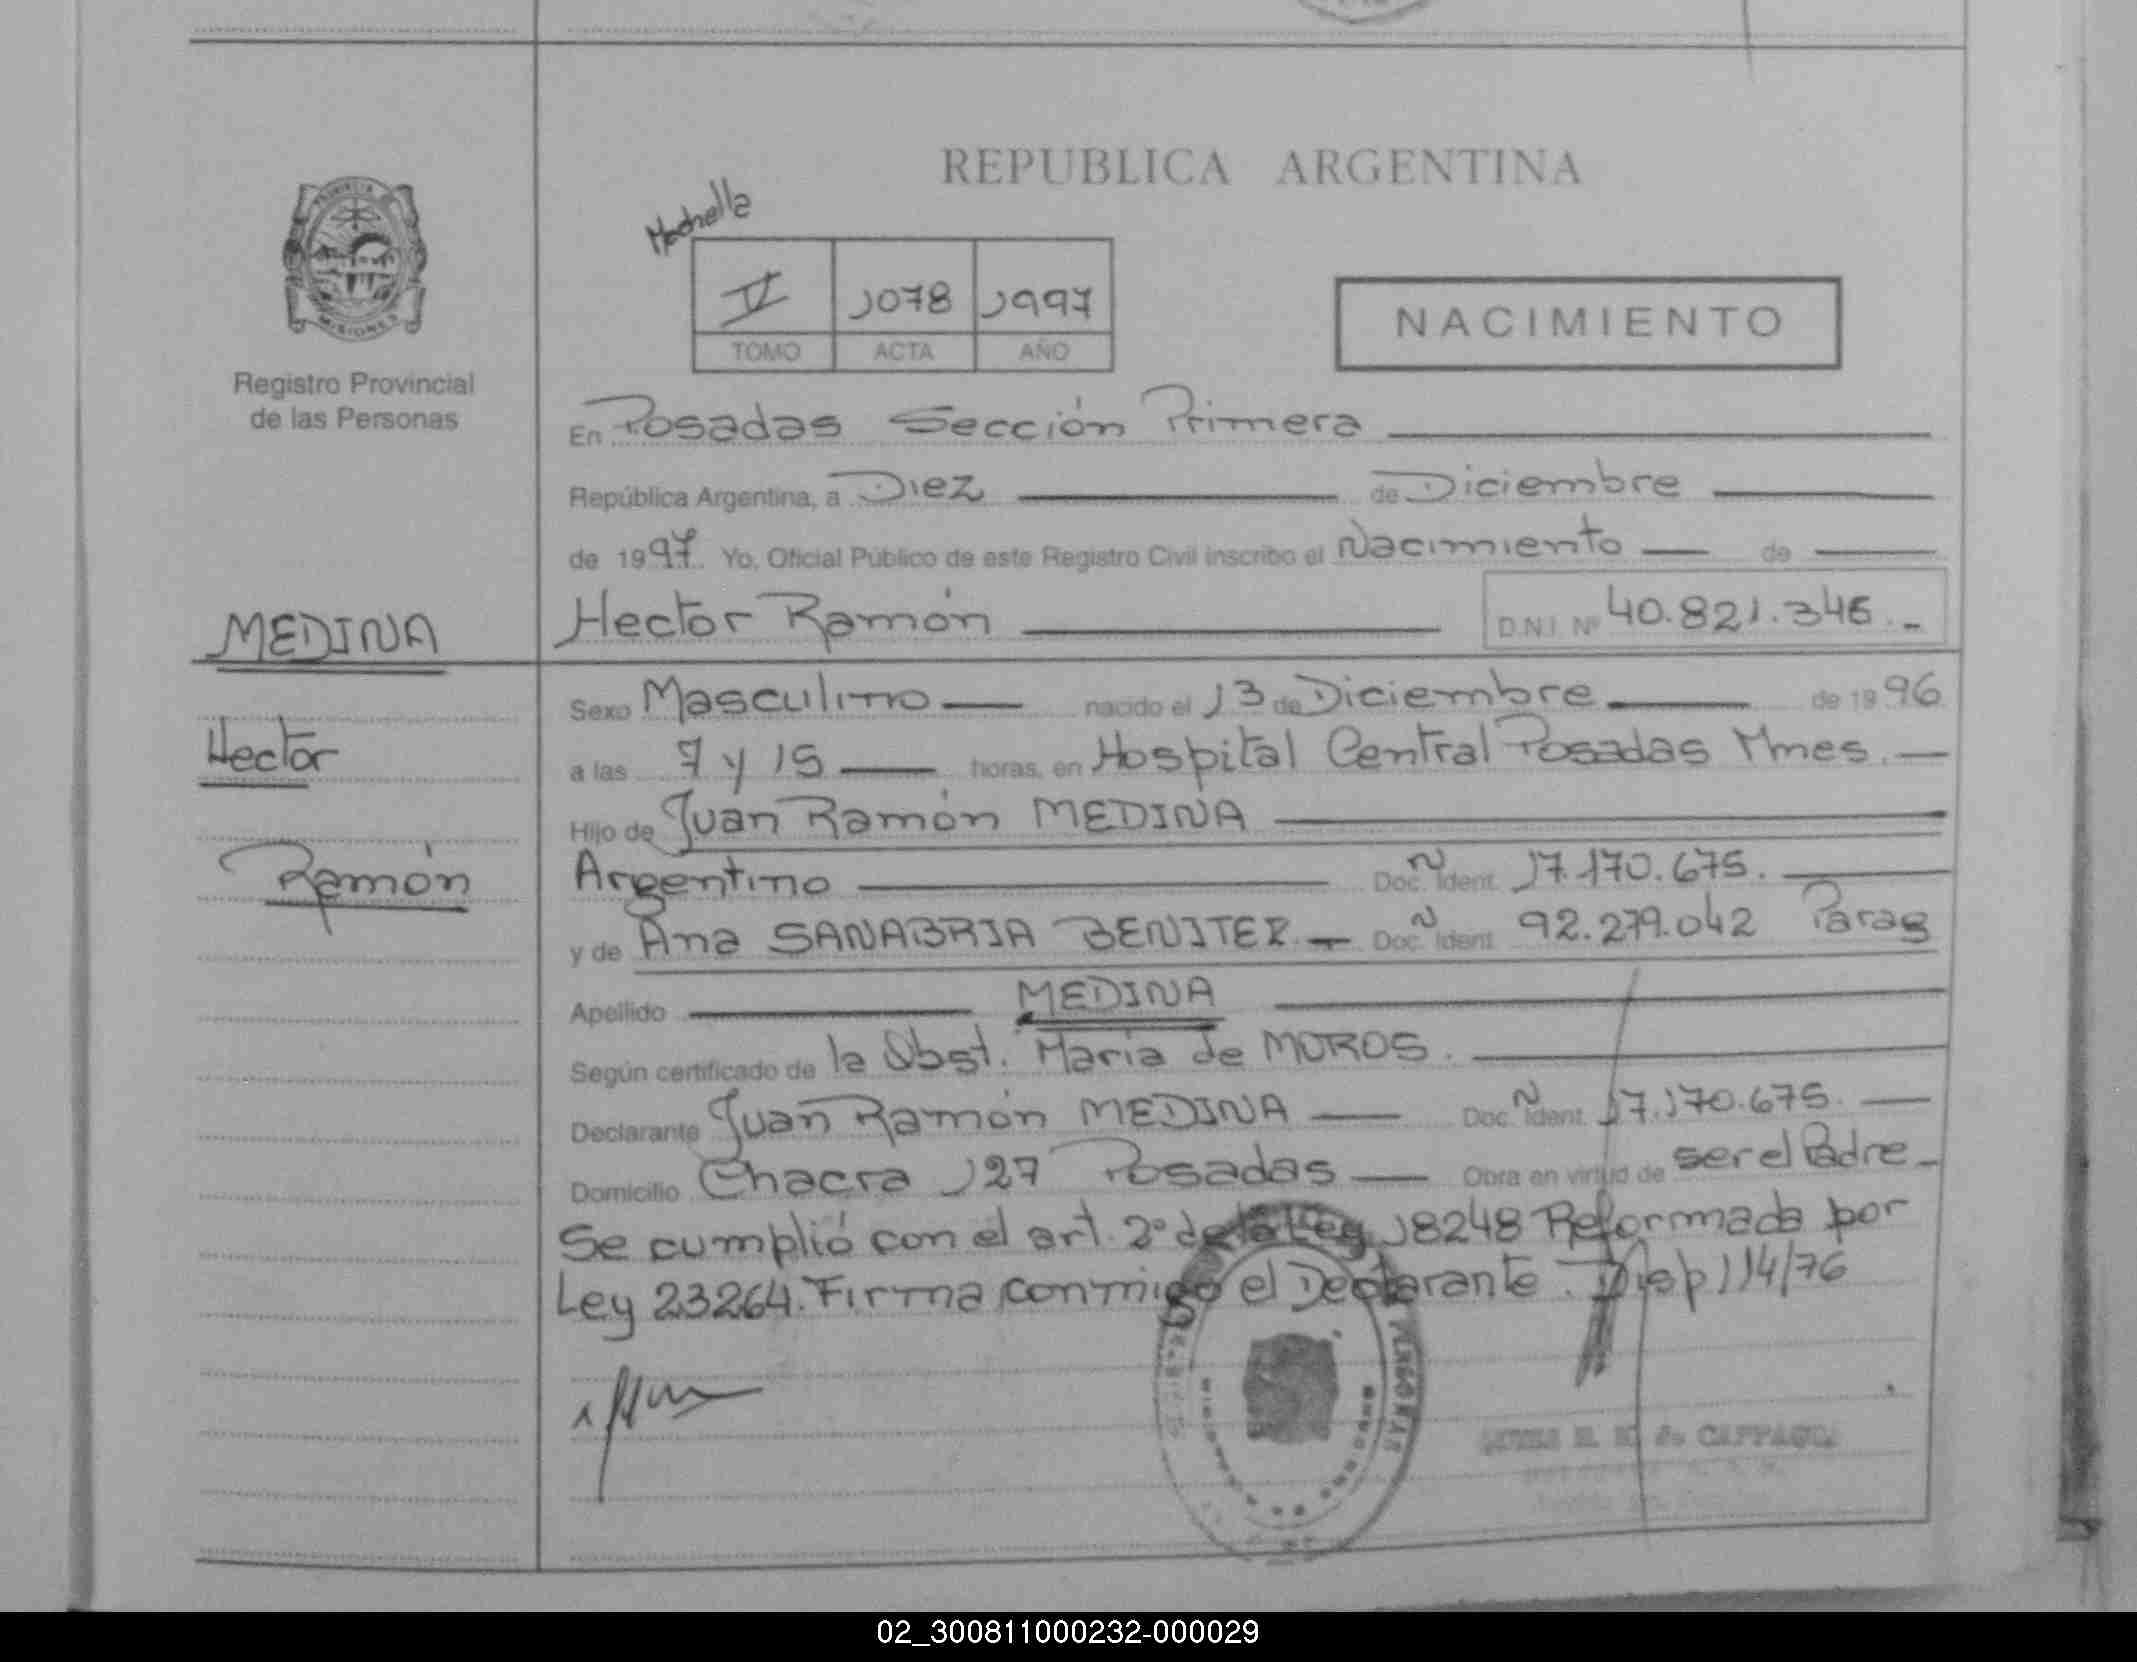 REPUBLICA ARGENTINA
V 1078 1997
TOMO ACTA AÑO
NACIMIENTO
MISIONES
Registro Provincial
de las Personas
En Posadas Sección Primera
República Argentina, a Diez de Diciembre
de 1997. Yo, Oficial Público de este Registro Civil inscribo el Nacimiento de
MEDINA
Hector Ramón D.N.I. Nº 40.821.346.-
Sexo Masculino nacido el 13 de Diciembre de 1996
Hector
a las 7 y 15 horas, en Hospital Central Posadas Mnes.
Hijo de Juan Ramón MEDINA
Ramón
Argentino Doc. Ident. 17.170.675.
y de Ana SANABRIA BENITEZ. Doc. Ident. 92.279.042 Parag
Apellido MEDINA
Según certificado de la Obst. Maria de MOROS.
Declarante Juan Ramón MEDINA Doc. Ident. 17.170.675.
Domicilio Chacra 127 Posadas Obra en virtud de ser el Padre
Se cumplió con el art. 2º de la Ley 18248 Reformada por
Ley 23264. Firma conmigo el Declarante. Disp 114/76
02_300811000232-000029